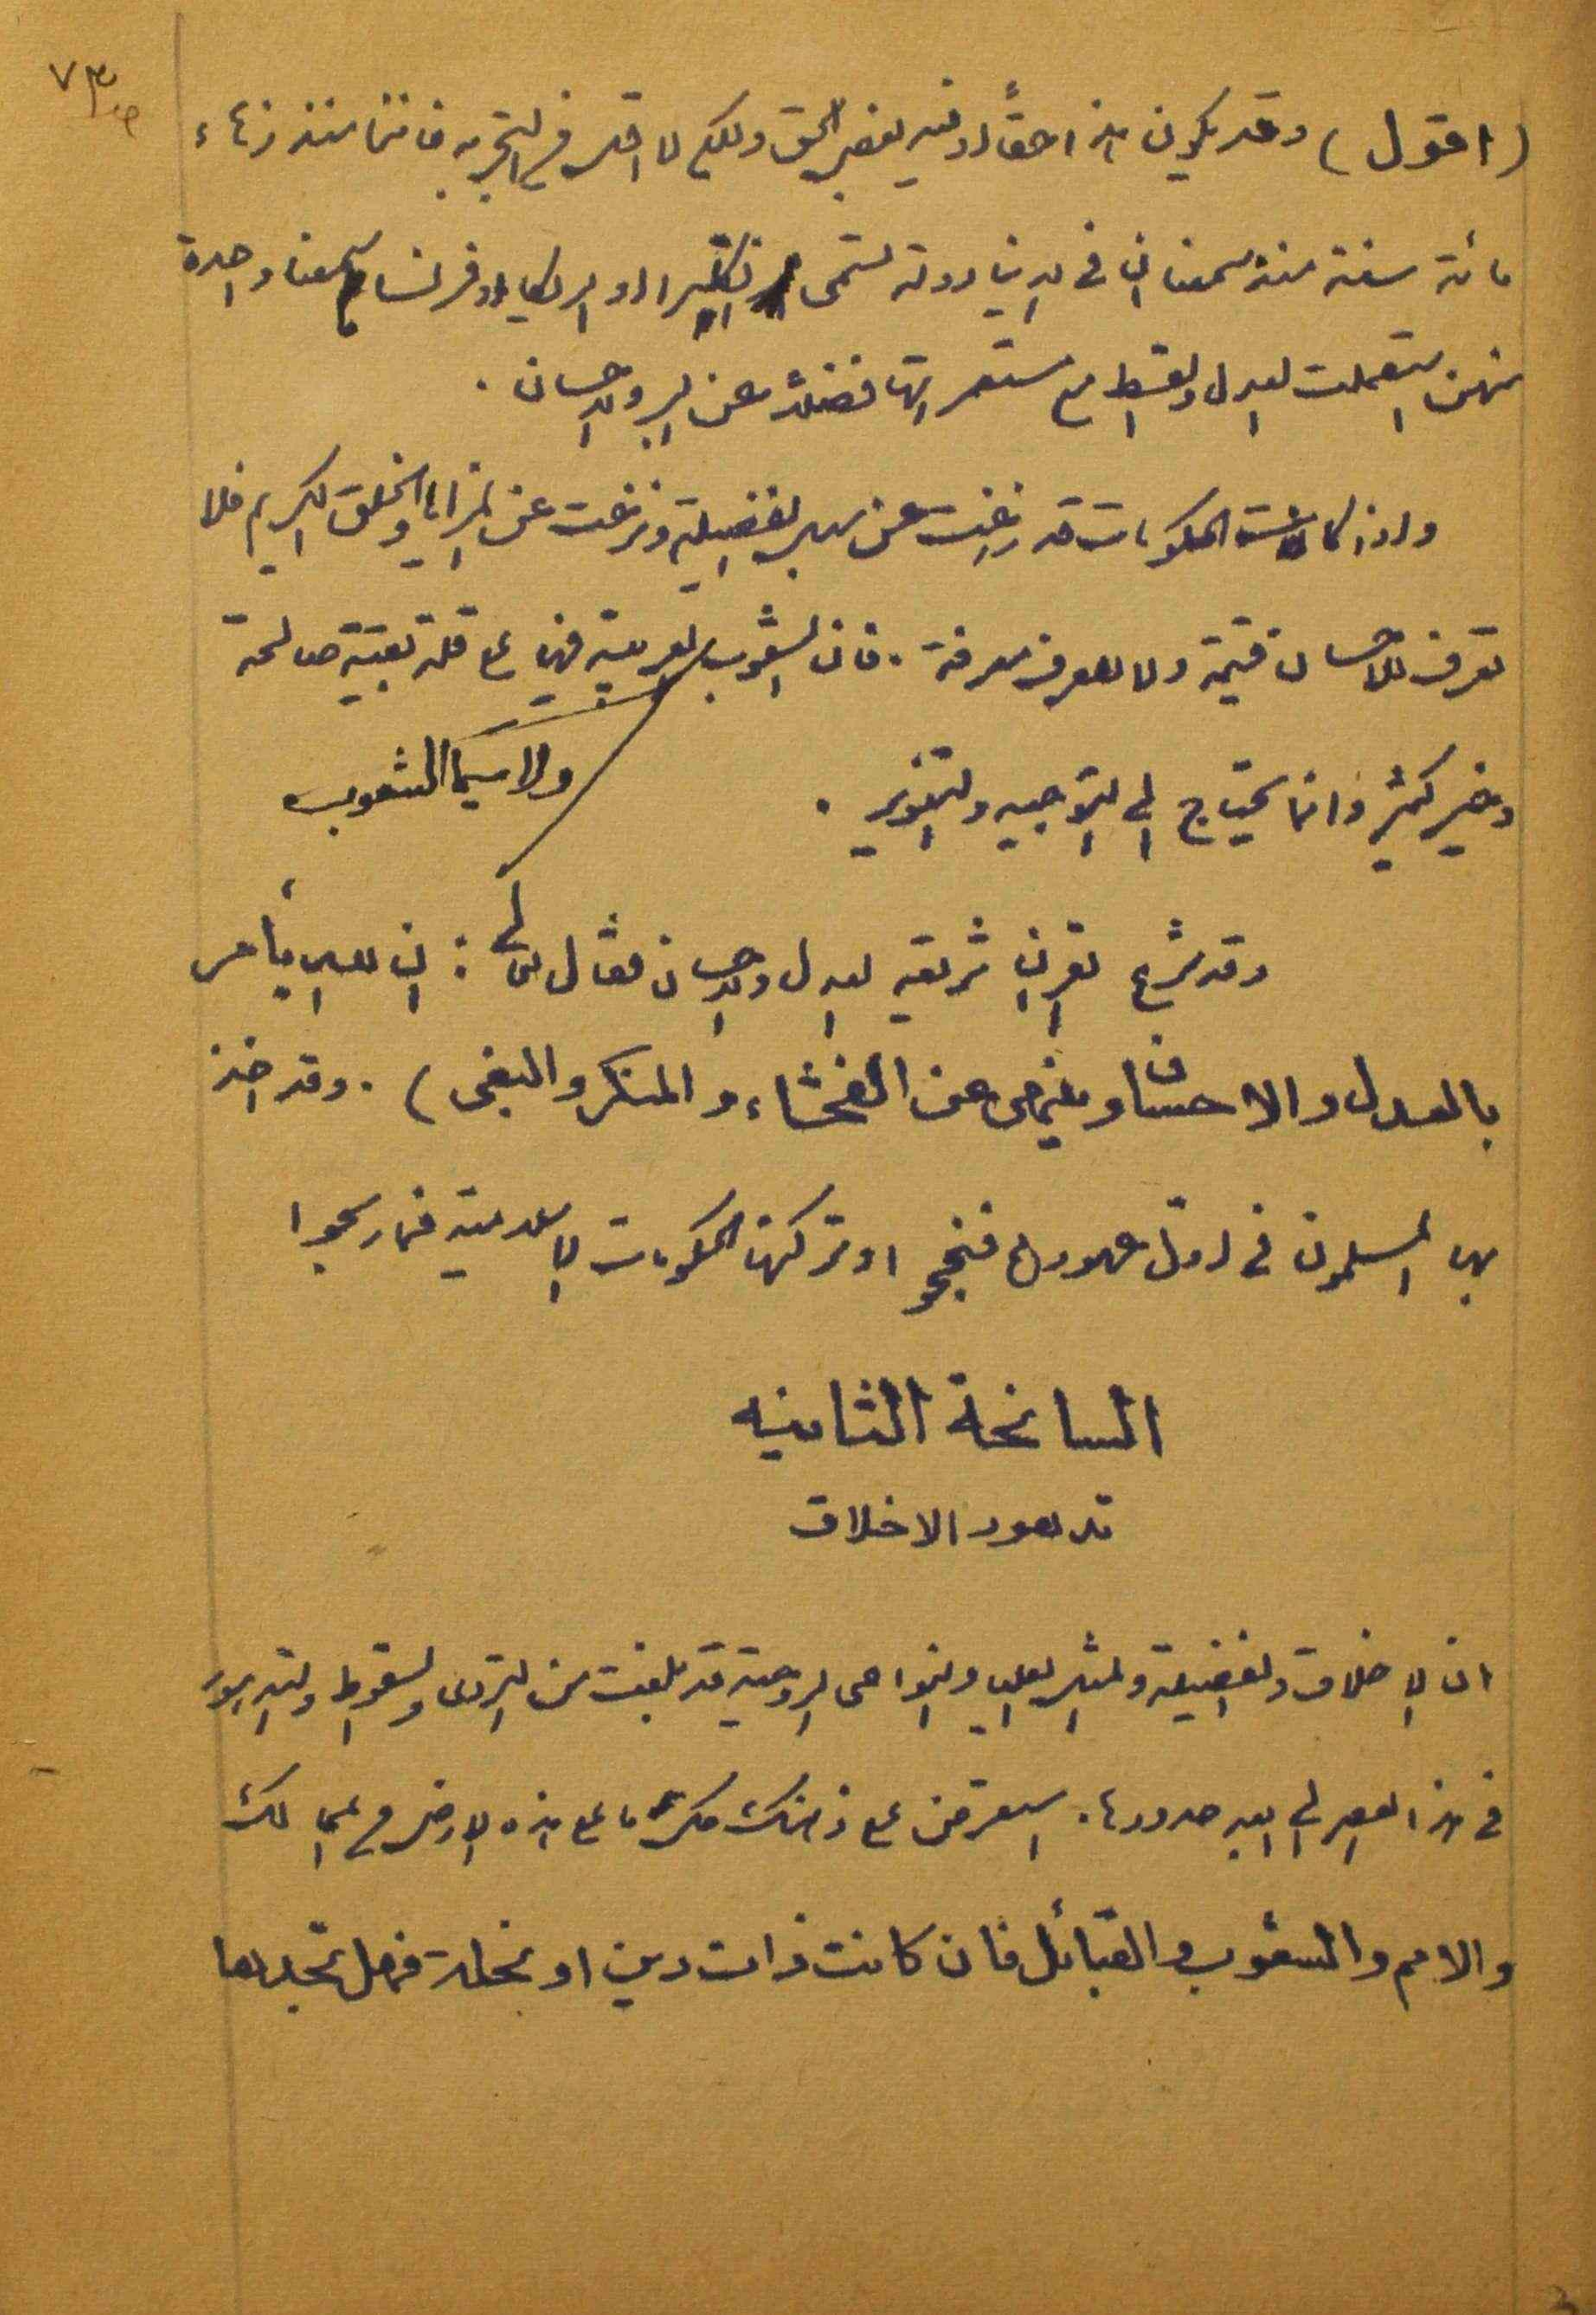 ٧٣
(اقول) وقد يكون هذا حقاً او فيه بعض الحق ولكن لا اقل من التجربة فاننا منذ زهاء
مائة سنة منذ سمعنا ان في الدنيا دولة تسمى انكلترا او امريكا او فرنسا ما سمعنا واحدة
منهن استعملت العدل والقسط مع مستعمراتها فضلا عن البر والاحسان .
واذا كانت الحكومات قد زاغت عن سبل الفضيلة ونزغت عن المزايا والخلق الكريم فلا
تعرف للاحسان قيمة ولا للعرف معرفة . فان الشعوب ولا سيما الشعوب العربية فيها على قلة بقية صالحة
وخير كثير وانما يحتاج الى التوجيه والتنوير .
وقد شرع القران شريعة العدل والاحسان فقال تعالى : ان الله يأمر
بالعدل والاحسان وينهى عن الفحشاء والمنكر والبغى ) . وقد اخذ
بها المسلمون في اول عهودهم فنجحوا وتركتها الحكومات الاسلامية فما ربحوا
السانحة الثامنه
تدهور الاخلاق
ان الاخلاق والفضيلة والمثل العليا والنواحى الروحية قد بلغت من التردى والسقوط والتدهور
في هذا العصر الى ابعد حدودها . استعرض على ذهنك كل ما على هذه الارض من الممالك
والامم والشعوب والقبائل فان كانت ذات دين او نحلة فهل تجدها